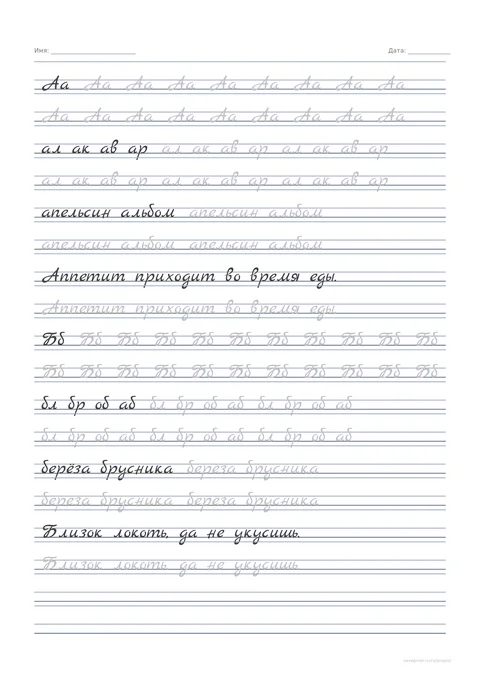 Имя: Дата:
Аа Аа Аа Аа Аа Аа Аа Аа Аа
Аа Аа Аа Аа Аа Аа Аа Аа Аа
ал ак ав ар ал ак ав ар ал ак ав ар
ал ак ав ар ал ак ав ар ал ак ав ар
апельсин альбом апельсин альбом
апельсин альбом апельсин альбом
Аппетит приходит во время еды.
Аппетит приходит во время еды.
Бб Бб Бб Бб Бб Бб Бб Бб Бб Бб Бб
Бб Бб Бб Бб Бб Бб Бб Бб Бб Бб Бб
бл бр об аб бл бр об аб бл бр об аб
бл бр об аб бл бр об аб бл бр об аб
берёза брусника береза брусника
береза брусника береза брусника
Близок локоть, да не укусишь.
Близок локоть, да не укусишь.